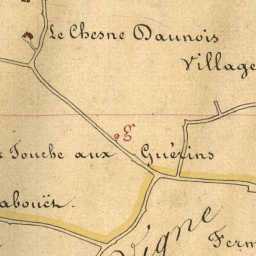 Le Chesne Daunois
Village
g
Touche aux Guérins
abouët.
Vigne
Ferm